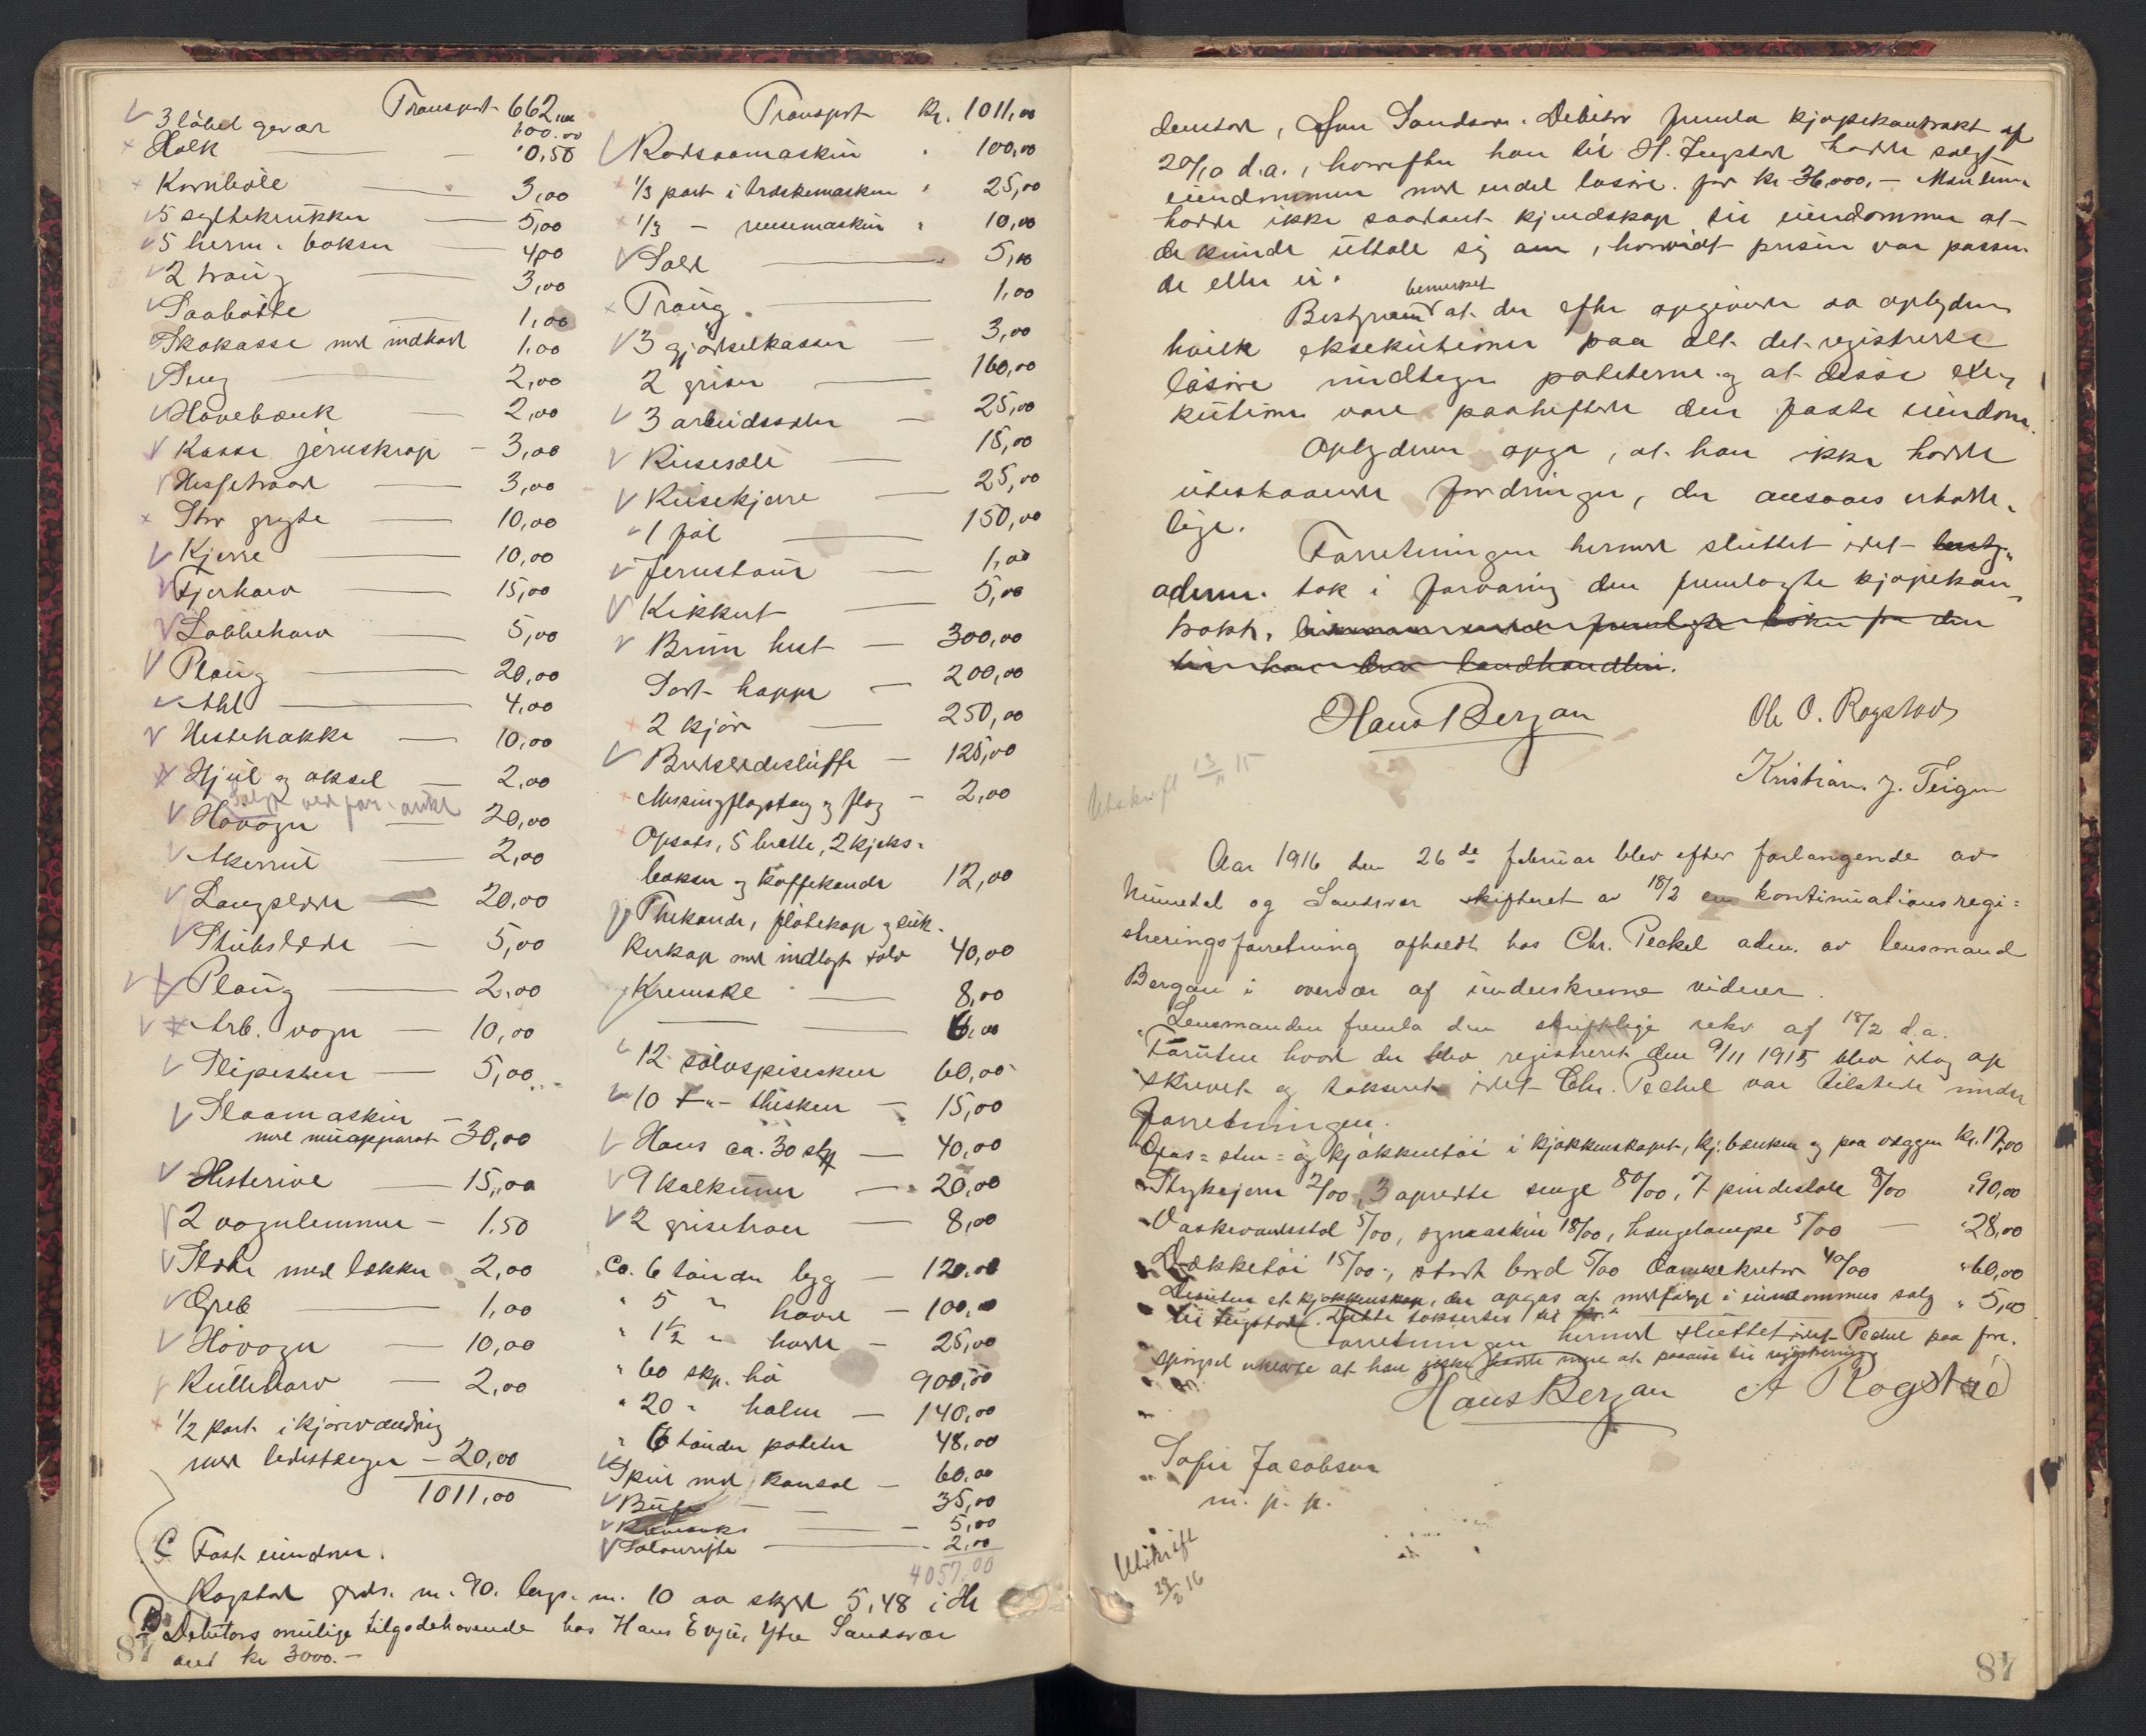 Transport 662,00
3 løbet gevær 100.00
Holk 0,50
Kornbøle 3,00
5 syltekrukker 5,00
5 herm. bokser 4,00
2 traug 3,00
Saabøtte 1,00
Skokasse med indhold 1,00
Seng 2,00
Høvebænk 2,00
Kasse jernskrap 3,00
Hesjetraad 3,00
Stor gryte 10,00
Kjerre 10,00
Fjærharv 15,00
Labbeharv 5,00
Ploug 20,00
Ahl 4,00
Hestehakke 10,00
Hjul og aksel 2,00
Solgt ved for. auk
Høvogn 20,00
Akerrul 2,00
Langslede 20,00
Stubslede 5,00
Ploug 2,00
Arb. vogn 10,00
Slipesten 5,00
Slaamaskin
med apparat 30,00
Hesterive 15,00
2 vognlemmer 1.50
med lækker 2,00
Greb 1,00
Høvogn 10,00
Rulleharv 2,00
1/2 part i kjørevænding
med ledestænger 20,00
1011,00
C Fast eiendom.
Rogstad grds. nr. 90. brgs. nr. 10 av skyld 5,48 i
D Debitors mulige tilgodehavende hos Hans Evju, Ytre Sandsvær
ant kr 3000.-
87
Transport Kr. 1011,00
Radsaamaskin 100,00
1/3 part i træskemaskin 25,00
1/3 - rensemaskin 10,00
Sold 5,00
Traug 1,00
3 gjødselkasser 3,00
2 griser 160,00
3 arbeidsseler 25,00
Reisesele 15,00
Reisekjerre 25,00
1 føl 150,00
Jernstaur 1,00
Kikkert 5,00
Brun hest 300,00
Sort hoppe 200,00
2 kjør 250,00
Bredsledesluffe 125,00
Messingflagstang og flag 2,00
Opsats, 5 brette, 2 kjeks-
bokser og kaffekande 12,00
Thekande, fløtekop og suk-
kerkop med indlagt sølv 40,00
Kremske 8,00
6,00
12 sølvspiseskeer 60,00
10 -"- theskeer 15,00
Høns ca. 30 stk 40,00
9 kalkuner 20,00
2 grisetroer 8,00
Ca. 6 tønder byg 120,00
" 5 " havre 100,00
" 1 1/2 " hvede 25,00
" 60 skp. hø 900,00
" 20 " halm 140,00
" 6 tønder poteter 48,00
Speil med konsol 60,00
Bufe 35,00
5,00
2,00
4057,00
denstad, Jon Sandsvær. Debitor fremla kjøpekontrakt af
20/10 d.a., hvorefter han til H. Teigstad hadde solgt
eiendommen med endel løsøre for kr 36.000,- Mændene
hadde ikke saadant kjendskap til eiendommen at
de kunde uttale sig om, hvorvidt prisen var passen-
de eller ei.
bemerket
Bestyreren at der efter opgivende av opbyderen
hviler eksekutioner paa alt det registrerte
løsøre undtagen poteterne og at disse ekse-
kutioner vare paaheftede den faste eiendom.
Opbyderen opga, at han ikke hadde
utestaaende fordringer, der ansaaes erholde-
lige.
Forretningen hermed sluttet idet besty-
aderen tok i forvaring den fremlagte kjøpekon-
trakt, lensmanden fremlagte bøker fra den
tid han drev landhandleri.
Hans Bergan Ole O. Rogstad
Kristian J. Teigen
Utskrift 13/11 15
Aar 1916 den 26de februar blev efter forlangende av
Numedal og Sandsvær skifteret av 18/2 en kontinuationsregi=
streringsforretning afholdt hos Chr. Peckel adm. av lensmand
Bergan i overvær af underskrevne vidner.
Lensmanden fremla den skriftlige rekv. af 18/2 d.a.
Foruten hvad der blev registrert den 9/11 1915 blev idag op
skrevet og taksert idet Chr. Peckel var tilstede under
forretningen.
Glas= sten= og kjøkkentøi i kjøkkenskapet, kj. bænken og paa væggen kr. 17,00
Strykejern 2/00, 3 opredte senge 80/00, 7 pindestole 8/00 " 90,00
Vaskevandsstol 5/00, symaskin 18/00, hængelampe 5/00 " 28,00
Dækketøi 15/00, stort bord 5/00 40/00 " 60,00
Desuten et kjøkkenskap, der opgas at medfølge i eiendommens salg " 5,00
til Teigstad. Dette takseres til kr.
Forretningen hermed sluttet idet Peckel paa fore-
spørgsel erklærte at han ikke hadde mere at paavise til registrering
Hans Bergan A Rogstad
Sofie Jacobsen
m. p. p.
Utskrift
29/2 16
87